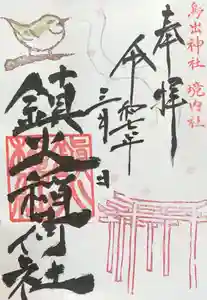 鳥出神社 境内社
奉拝
令和七年
三月 日
鎮火稲荷社